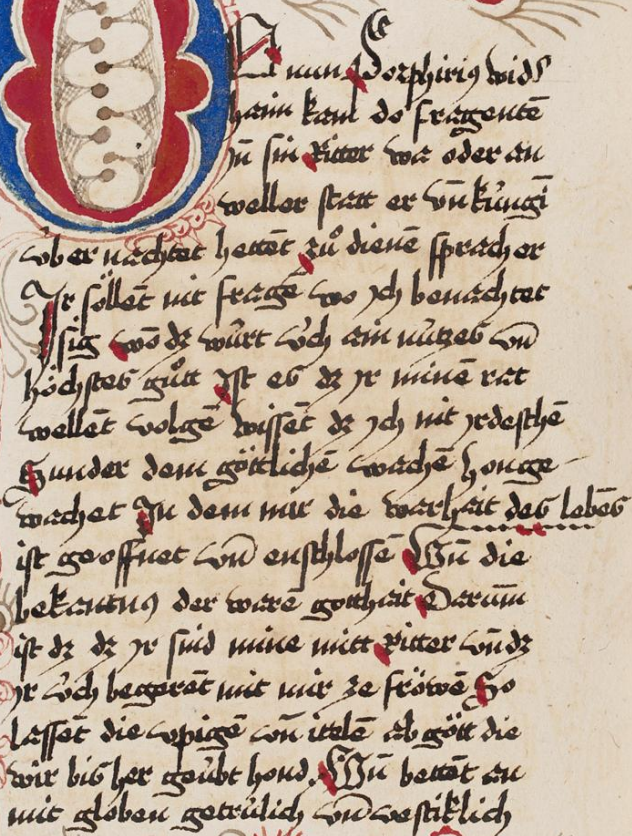 O nun Porphirius wids
haim kam do fragentē
jn̄ sin Ritter wa oder an
weller statt er vn̄ kúngi
vber nachtet hettēt zů dienē sprach er
Ir söllēt nit fragē wo jch benachtet
sig wō dz wúrt úch ain nútzes vn̄
höchstes gůtt Ist es dz jr minē rat
wellēt volgē wissēt dz jch nit jrdeschē
Sunder dem göttlichē wachē honge
wachet In dem mir die warhait des lebēs
ist geoffnet vn̄ enschlossē Vn̄ die
bekantnus der warē gotthait Darum̄
ist dz dz jr sind mine mitt Ritter vn̄ dz
jr úch begerēt mit mir ze fröwē So
lassēt die vpigē vn̄ itelē abgött die
wir bis her geúbt hond. Vn̄ bettēt an
mit globen getrúlich vn̄ vestiklich